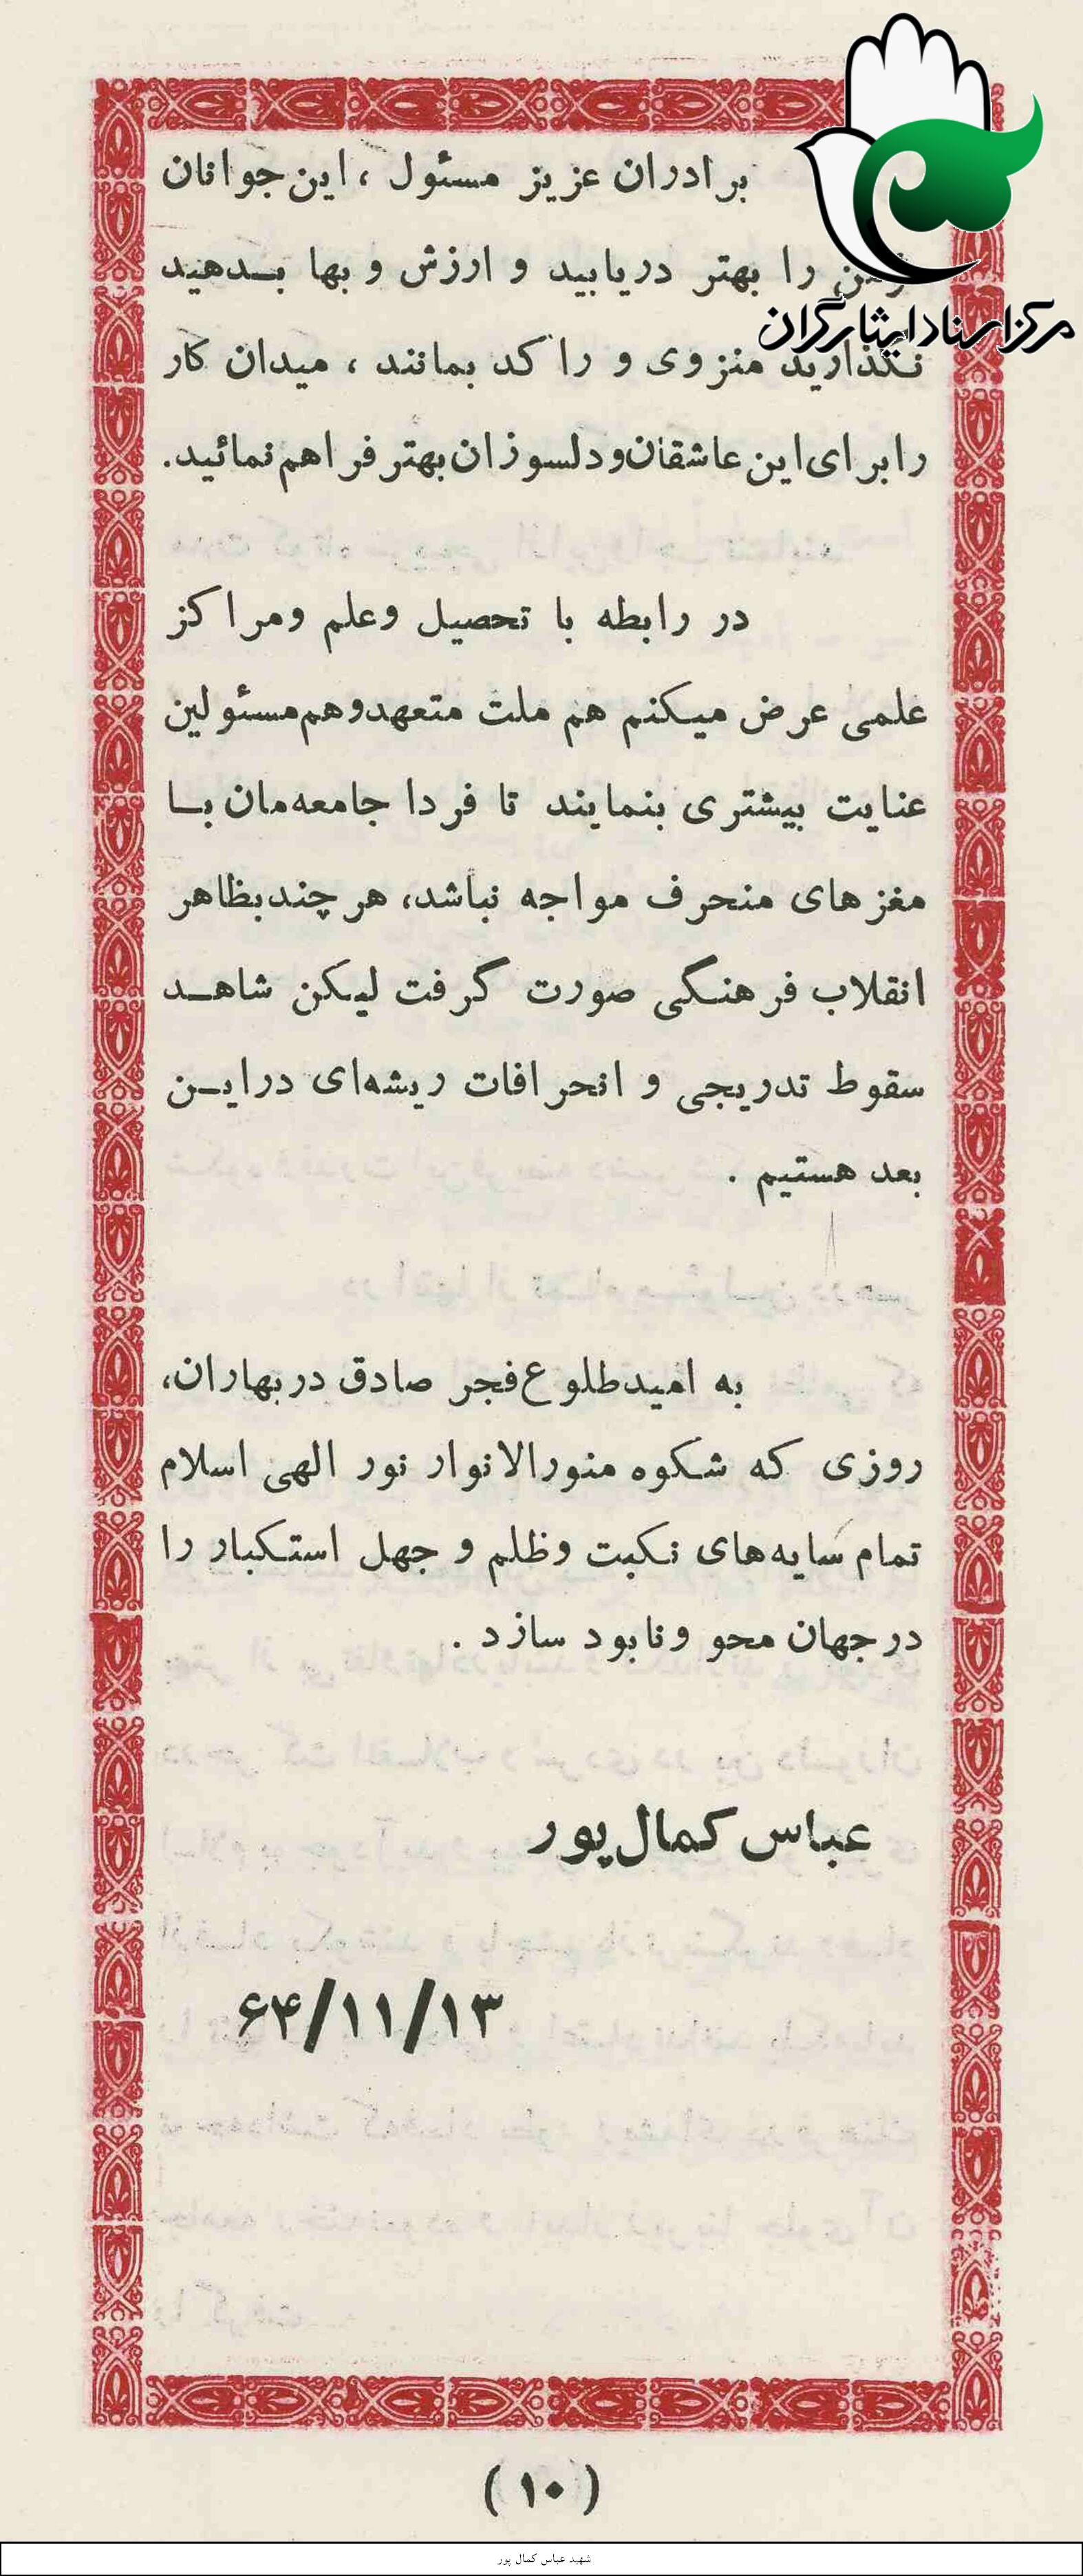 برادران عزیز مسئول ، این جوانان
را بهتر دریابید و ارزش و بها بـدهید
مرکز اسناد ایثارگران
نگذارید منزوی و راکد بمانند ، میدان کار
را برای این عاشقان و دلسوزان بهتر فراهم نمائید.
در رابطه با تحصیل وعلم ومراکز
علمی عرض میکنم هم ملت متعهد و هم مسئولین
عنایت بیشتری بنمایند تا فردا جامعه‌مان بـا
مغزهای منحرف مواجه نباشد، هر چند بظاهر
انقلاب فرهنگی صورت گرفت لیکن شاهـد
سقوط تدریجی و انحرافات ریشه‌ای در ایـن
بعد هستیم .
به امید طلوع فجر صادق در بهاران،
روزی که شکوه منورالانوار نور الهی اسلام
تمام سایه‌های نکبت وظلم و جهل استکبار را
در جهان محو ونابود سازد .
عباس کمال پور
۶۴/۱۱/۱۳
(۱۰)
شهید عباس کمال پور